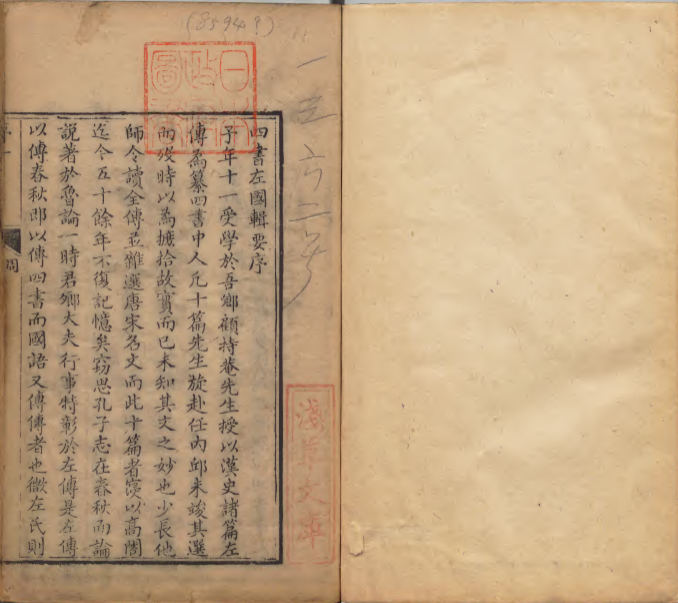 (8594 ?)
一五六二号
四書左國輯要序
予年十一受學於吾鄉顧持菴先生授以漢史諸篇左
傳爲纂四書中人凡十篇先生旋赴任內邱未竣其選
而歿時以爲摭拾故實而已未知其文之妙也少長他
師令讀全傳並雜選唐宋名文而此十篇者遂以高閣
迄今五十餘年不復記憶矣竊思孔子志在春秋而論
說著於魯論一時君卿大夫行事特彰於左傳是左傳
以傳春秋即以傳四書而國語又傳傳者也微左氏則
淺草文庫